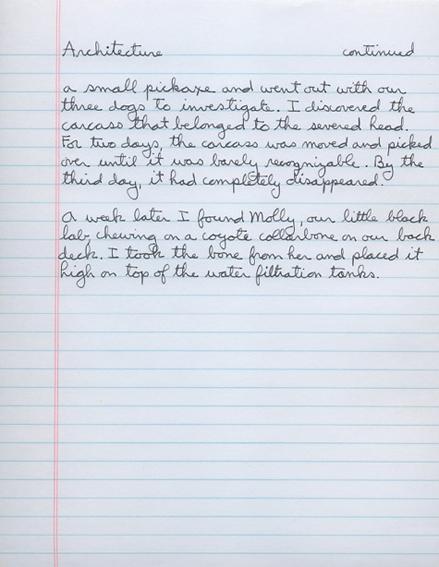 Architecture continued
a small pickaxe and went out with our
three dogs to investigate. I discovered the
carcass that belonged to the severed head.
For two days, the carcass was moved and picked
over until it was barely recognizable. By the
third day, it had completely disappeared.
A week later I found Molly, our little black
lab, chewing on a coyote collarbone on our back
deck. I took the bone from her and placed it
high on top of the water filtration tanks.